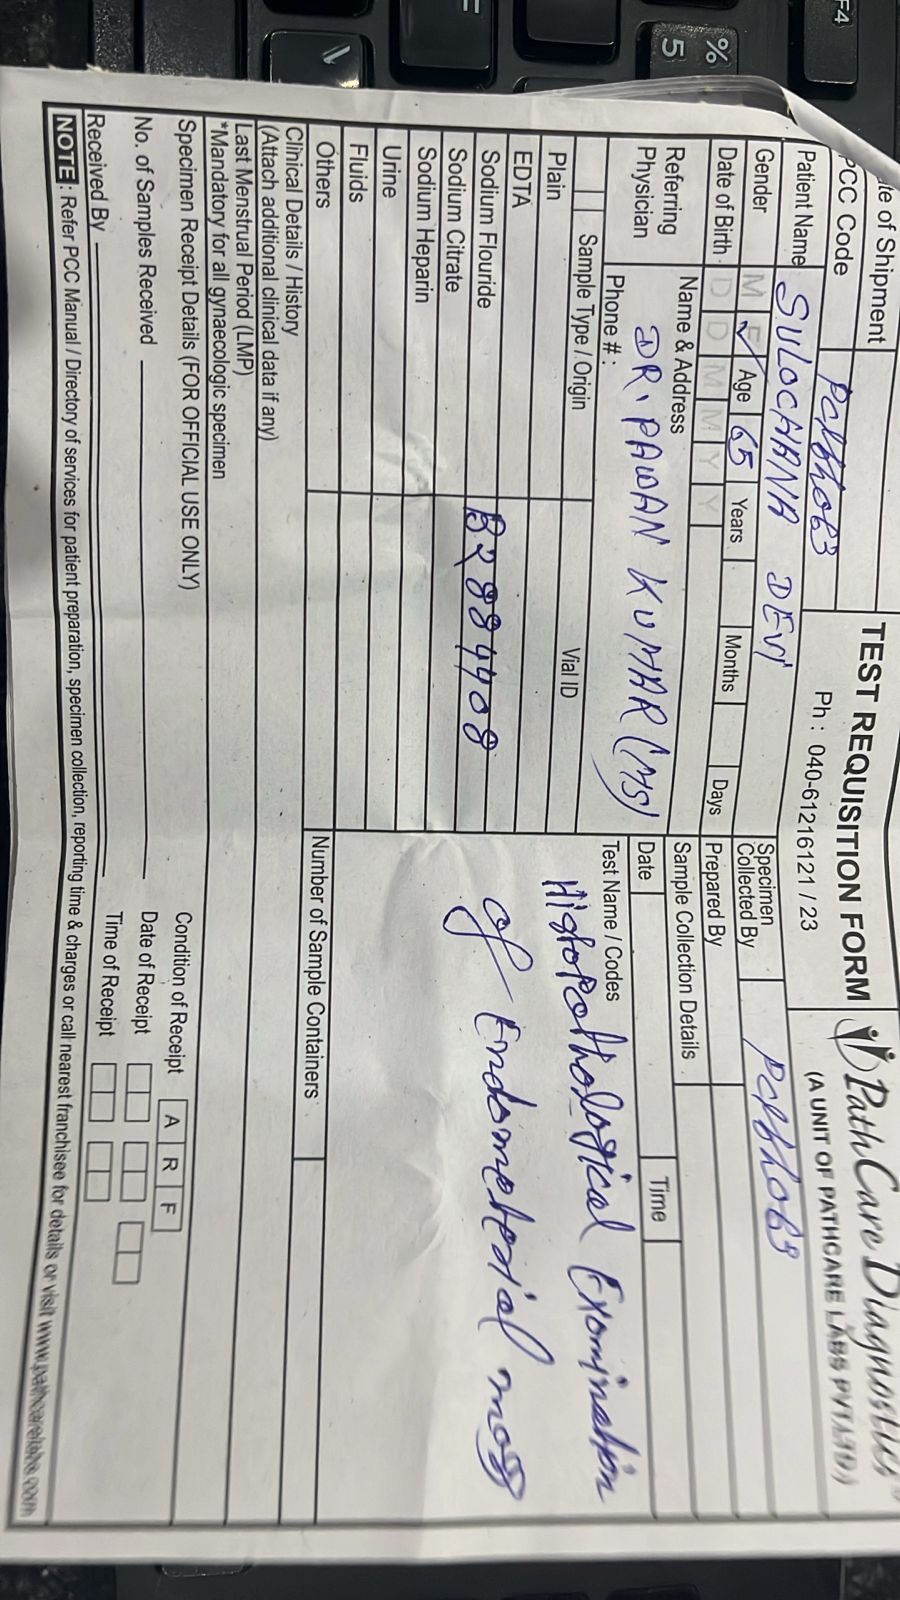 te of Shipment
PCC Code
PCPbh063
TEST REQUISITION FORM
Ph : 040-61216121 / 23
PathCare Diagnostics
(A UNIT OF PATHCARE LABS PVT LTD)
Patient Name
SULOCHANA DEVI
Gender M F Age 65 Years Months Days
Date of Birth D D M M Y Y
Specimen Collected By
PCPbh063
Prepared By
Referring Physician
Name & Address
DR. PAWAN KUMAR (MS)
Phone # :
Sample Collection Details
Date
Time
Sample Type / Origin
Vial ID
Test Name / Codes
Histopathological Examination
of Endometrial mass
Plain
EDTA
Sodium Flouride
B2884408
Sodium Citrate
Sodium Heparin
Urine
Fluids
Others
Number of Sample Containers
Clinical Details / History
(Attach additional clinical data if any)
Last Menstrual Period (LMP)
*Mandatory for all gynaecologic specimen
Specimen Receipt Details (FOR OFFICIAL USE ONLY)
Condition of Receipt A R F
No. of Samples Received
Date of Receipt
Received By
Time of Receipt
NOTE : Refer PCC Manual / Directory of services for patient preparation, specimen collection, reporting time & charges or call nearest franchisee for details or visit www.pathcarelabs.com
F4
%
5